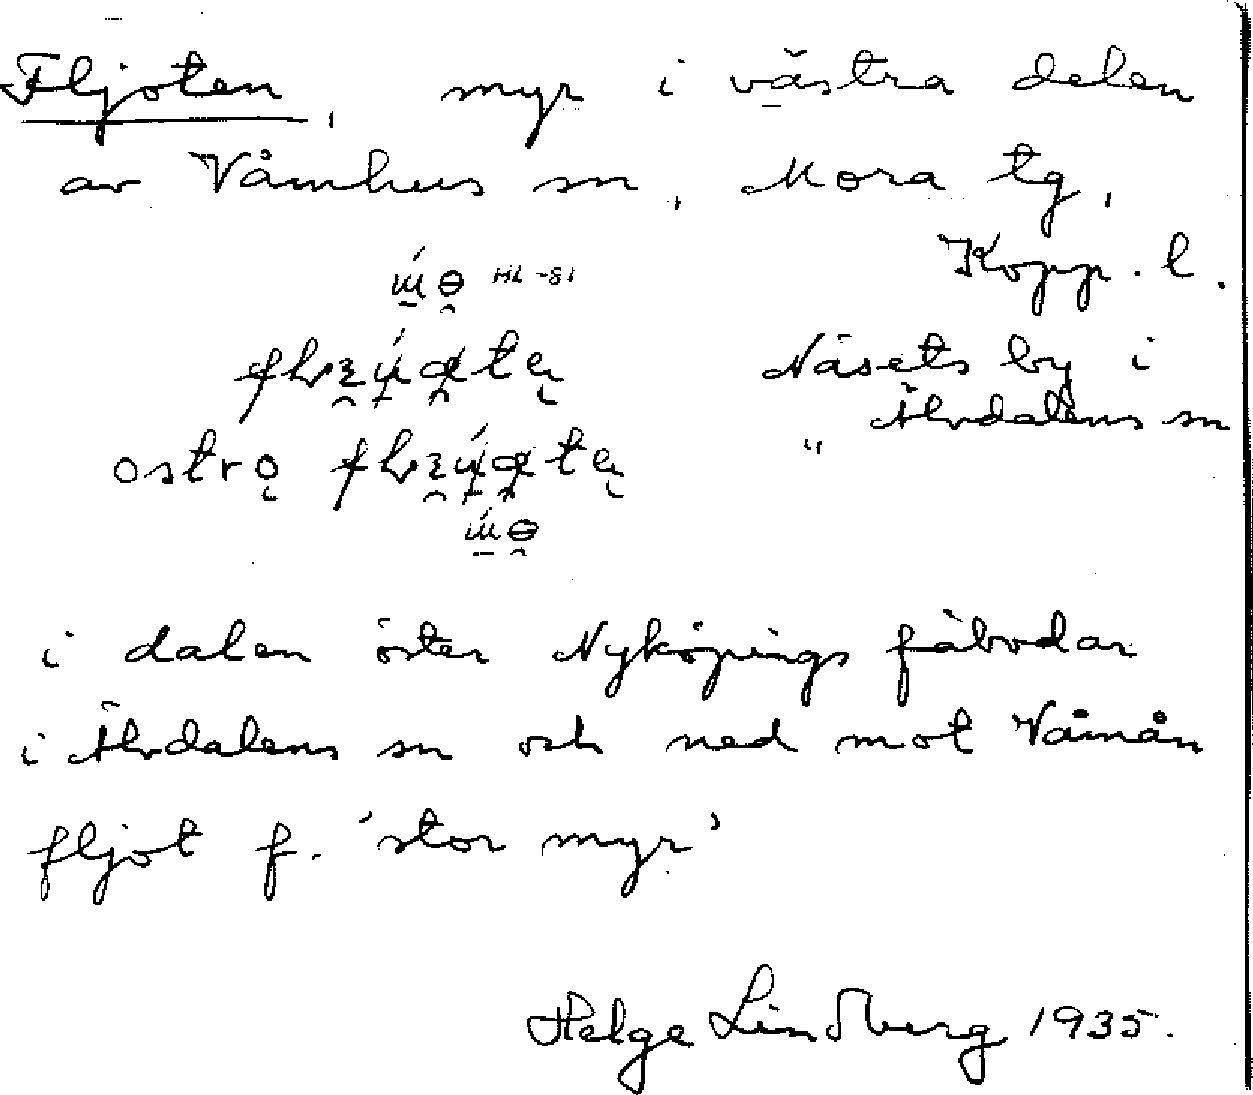 Fljoten, myr i västra delen
av Våmhus sn, Mora tg,
Kopp. l.
HL -81
Näsets by i
Älvdalens sn
ostrǫ "
i dalen öster Nyköpings fäbodar
i Älvdalens sn och ned mot Våmån
fljot f. 'stor myr'
Helge Lindberg 1935.